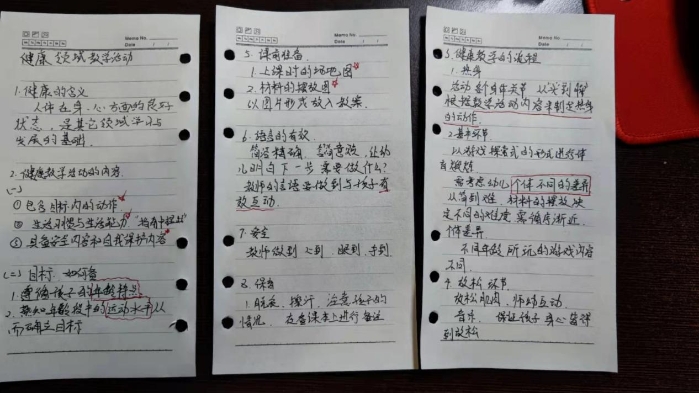 Memo No.
Date
健康领域教学活动
1.健康的含义
人体在身、心方面的良好
状态，是其它领域学习与
发展的基础.
2.健康教学活动的内容
(一)
①包含目标内的动作
②生活习惯与生活能力
③具备安全内容和自我保护内容
(二)目标、如何备
1.遵循孩子的年龄特点
2.熟知年龄段中的运动水平从
而确立目标
Memo No.
Date
5.课前准备
1.上课时的场地图
2.材料的摆放图
以图片形式放入教案.
6.语言的有效
简洁精确、让幼
儿明白下一步需要做什么?
教师的言语要做到与孩子有
效互动.
7.安全
教师做到心到、眼到、手到
8.保育
1.脱衣、擦汗、注意孩子的
情况、在备课本上进行备注
Memo No.
Date
3.健康教学的流程
1.热身
活动各个身体关节 从"头到脚"
根据教学活动内容来制定热身
的动作.
2.基本环节
以游戏探索式的形式进行体
育锻炼
需考虑幼儿个体不同的差异
从简到难 材料的摆放决
定不同的难度 需循序渐近.
个体差异
不同年龄所玩的游戏内容
不同.
4.放松环节
放松肌肉、师幼互动
音乐、保证孩子身心皆得
到放松